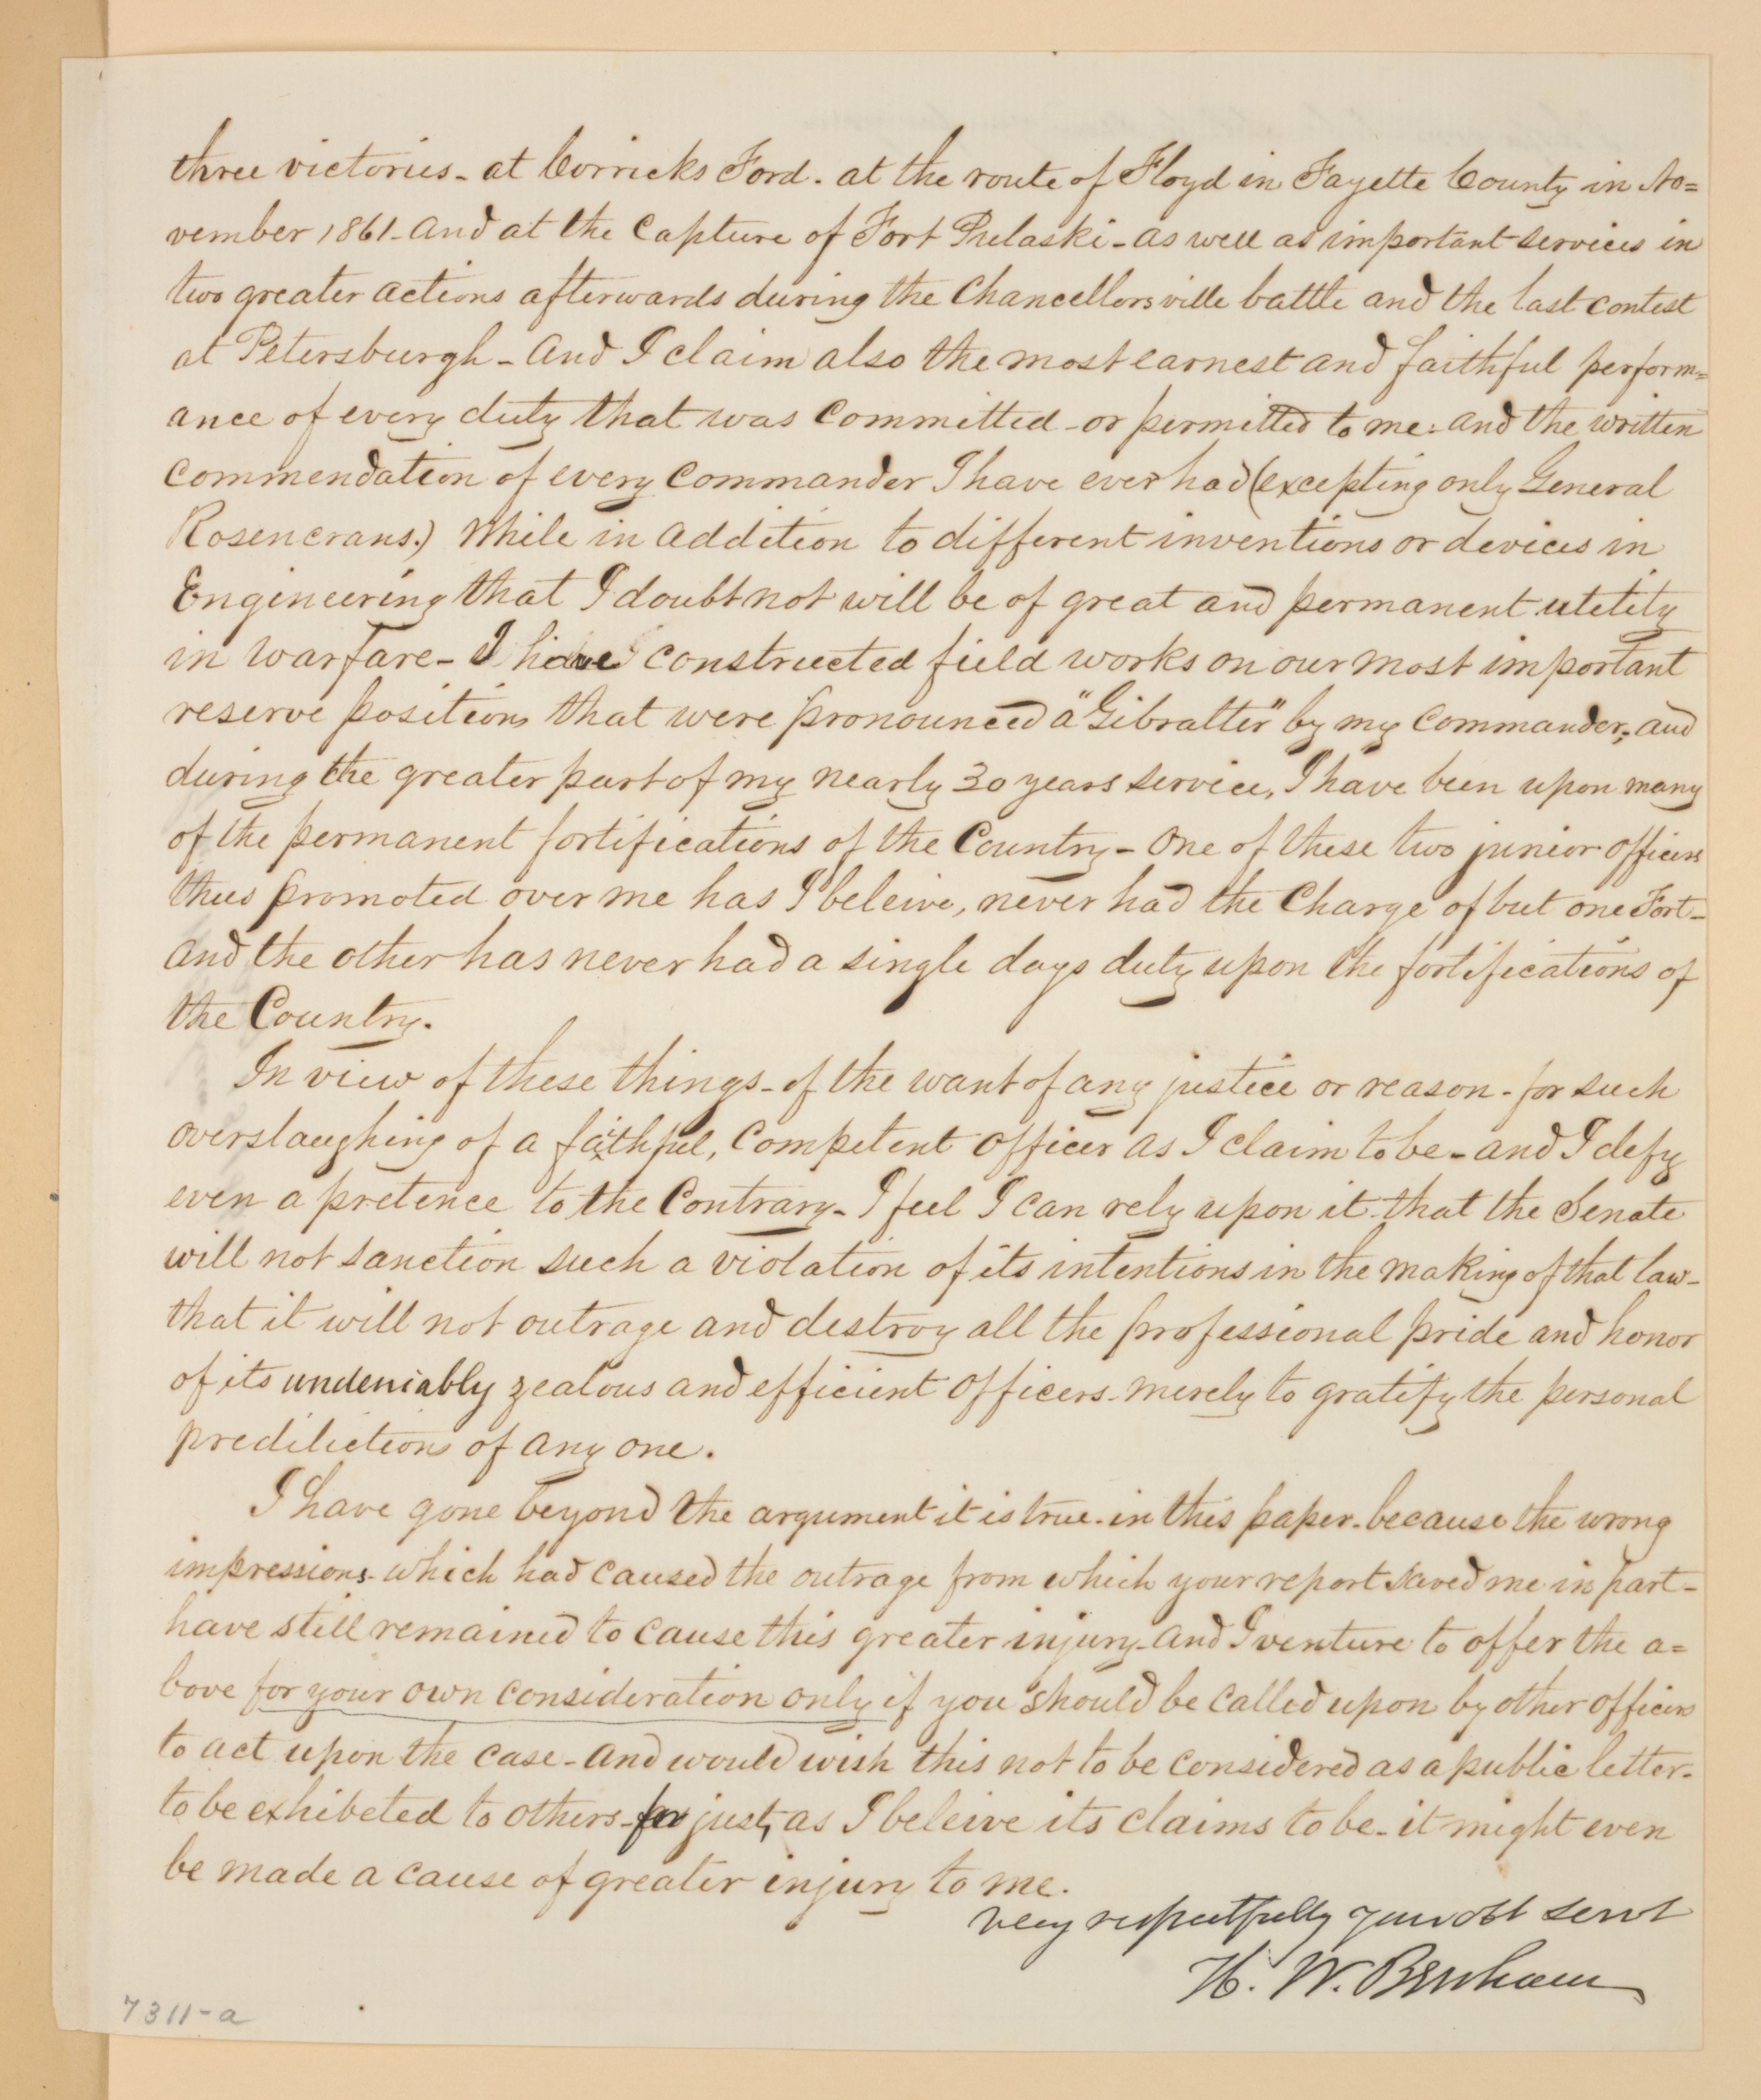 three victories - at Corricks Ford - at the route of Floyd in Fayette County in No=
vember 1861 - and at the Capture of Fort Pulaski - as well as important services in
two greater actions afterwards during the Chancellorsville battle and the last contest
at Petersburgh - And I claim also the most earnest and faithful perform=
ance of every duty that was committed - or permitted to me: and the written
commendation of every Commander I have ever had (excepting only General
Rosencrans.) While in addition to different inventions or devices in
Engineering that I doubt not will be of great and permanent utility
in warfare - I have constructed field works on our most important
reserve positions that were pronounced a "Gibralter" by my Commander; and
during the greater part of my nearly 30 years service, I have been upon many
of the permanent fortifications of the Country - One of these two junior officers
thus promoted over me has I beleive, never had the Charge of but one Fort -
and the other has never had a single days duty upon the fortifications of
the Country.
In view of these things - of the want of any justice or reason - for such
overslaughing of a faithful, Competent officer as I claim to be - and I defy
even a pretence to the Contrary - I feel I can rely upon it - that the Senate
will not sanction such a violation of its intentions in the making of that law -
that it will not outrage and destroy all the professional pride and honor
of its undeniably zealous and efficient officers - merely to gratify the personal
predilictions of any one.
I have gone beyond the argument it is true - in this paper - because the wrong
impressions - which had caused the outrage from which your report saved me in part -
have still remained to cause this greater injury - And I venture to offer the a=
bove for your own consideration only if you should be called upon by other officers
to act upon the case - and would wish this not to be considered as a public letter -
to be exhibeted to others - for just, as I beleive its claims to be - it might even
be made a cause of greater injury to me.
Very respectfully your obt servt
H. W. Benham
7311-a